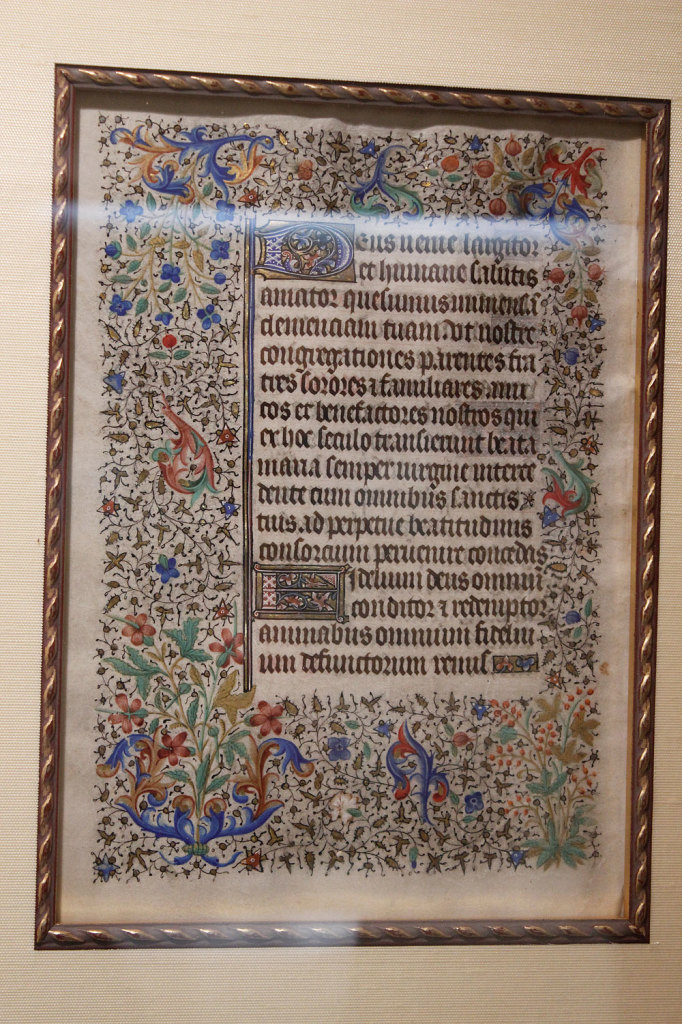 Deus uenie largitor
et humane salutis
amator quesumus immensā
clemenciam tuam. vt nostre
congregationes parentes fra
tres sorores ⁊ familiares. ami
cos et benefactores nostros qui
ex hoc seculo transierunt beata
maria semper uirgine interce
dente cum omnibus sanctis
tuis. ad perpetue beatitudinis
consorcium peruenire concedas
Fidelium deus omniū
conditor ⁊ redemptor
animabus omnium fideli
um defunctorum remis